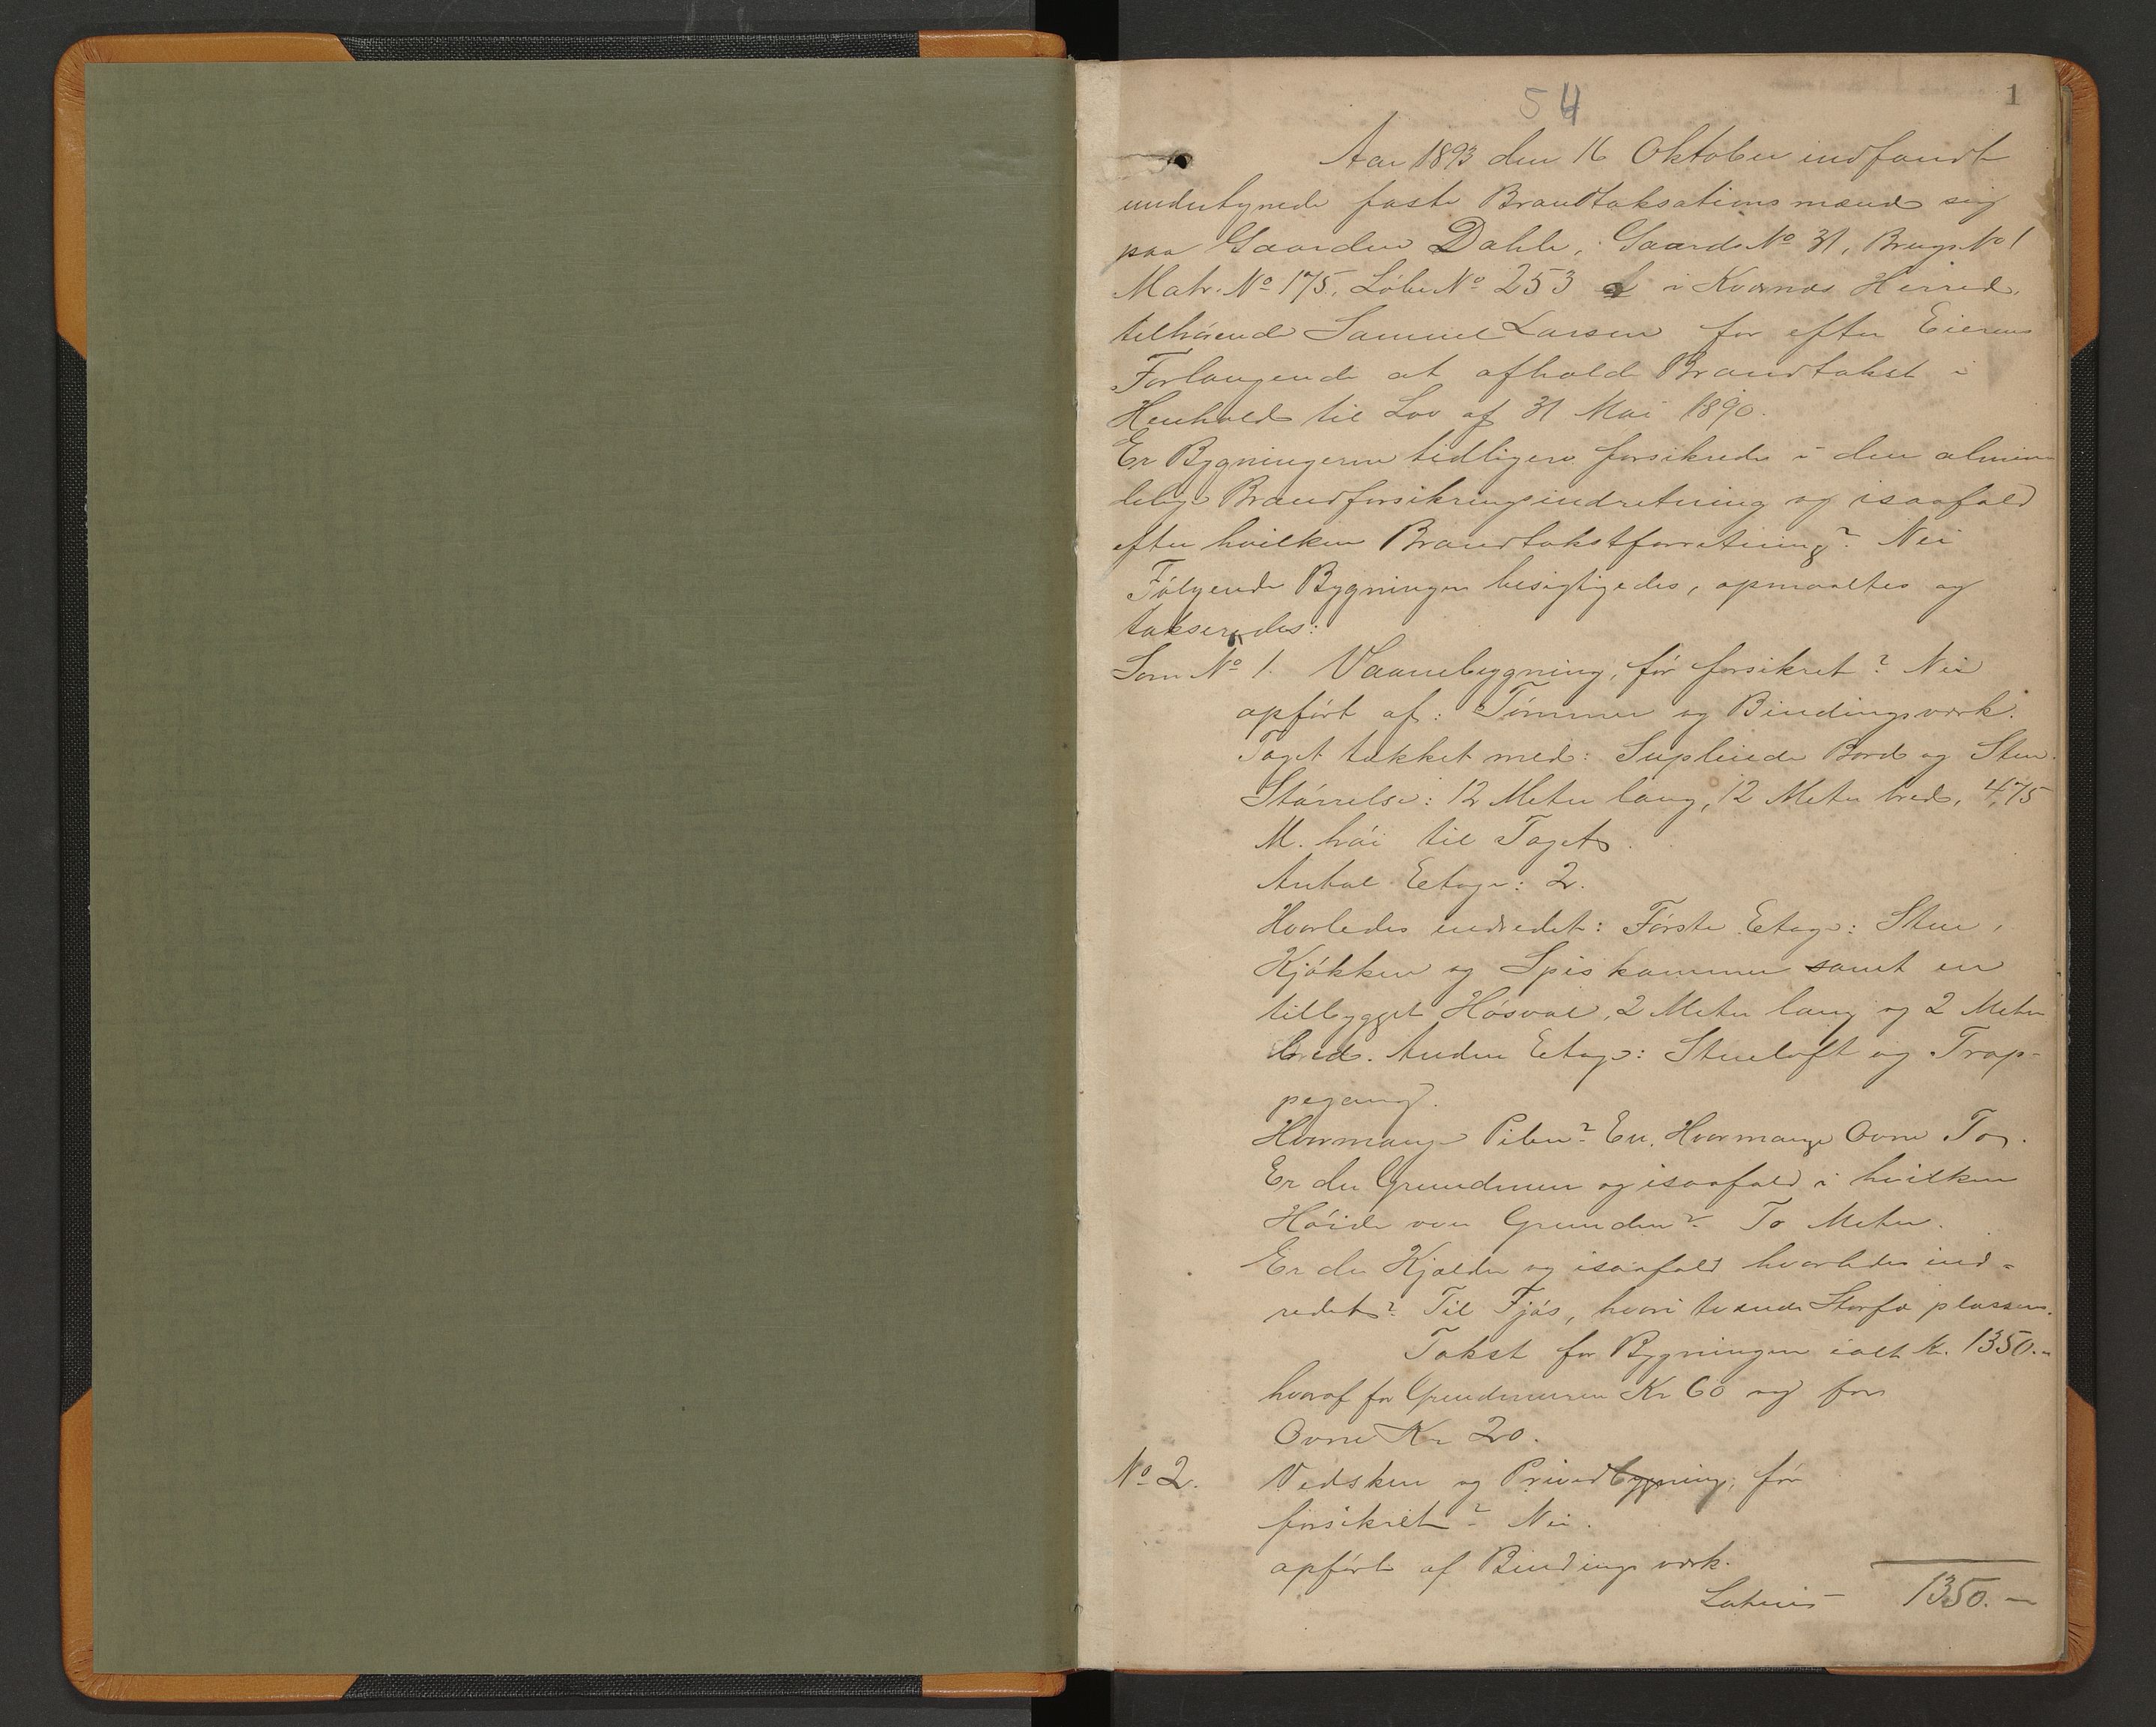 54
1
Aar 1893 den 16 Oktober indfandt
undertegnede faste Brandtaksationsmænd sig
paa Gaarden Dahle, Gaards No 31, Brugs No 1
Matr. No 175, Løbe No 253 i Kværnæs Herred,
tilhørende Samuel Larsen for efter Eierens
Forlangende at afholde Brandtakst i
Henhold til Lov af 31 Mai 1890.
Er Bygningerne tidligere forsikrede i den almin
delige Brandforsikringsindretning og isaafald
efter hvilken Brandtakstforretning? Nei
Følgende Bygninger besigtigedes, opmaaltes og
takseredes:
Som No 1. Vaanebygning, før forsikret? Nei
opført af: Tømmer og Bindingsværk.
Taget tækket med: Supleiede Bord og Sten.
Størrelse: 12 Meter lang, 12 Meter bred, 4,75
M. høi til Taget.
Antal Etage: 2.
Hvorledes indredet: Første Etage: Stue,
Kjøkken og Spiskammer samt en
tilbygget Høsval, 2 Meter lang og 2 Meter
bred. Anden Etage: Stueloft og Trap-
pegang.
Hvormange Piber? En. Hvormange Ovne To.
Er der Grundmur og isaafald i hvilken
Høide over Grunden? To Meter.
Er der Kjælder og isaafald hvorledes ind-
redet? Til Fjøs, hvori tvende Storfæ plasseres.
Takst for Bygningen ialt Kr. 1350.-
hvoraf for Grundmuren Kr 60 og for
Ovne Kr 20.
No 2. Vedskur og Privedbygning, før
forsikret? Nei.
opført af Bindingsværk.
Lateris 1350.-